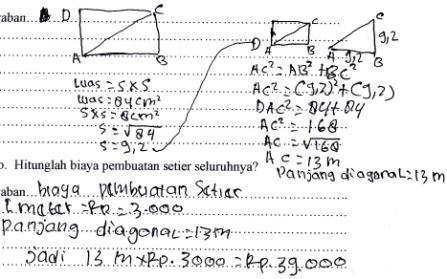 aban
D C
A B
Luas = s x s
Luas = 84 cm²
s x s = 8 cm²
s = √84
s = 9,2
C
D A B
C
9,2
A 9,2 B
AC² = AB² + BC²
AC² = (9,2)² + (9,2)
DAC² = 84 + 84
AC² = 168
AC = √168
AC = 13 m
Panjang diagonal = 13 m
b. Hitunglah biaya pembuatan setier seluruhnya?
aban biaya pembuatan Setier
1 meter = Rp = 3.000
panjang diagonal = 13 m
Jadi 13 m x Rp. 3000 = Rp. 39.000